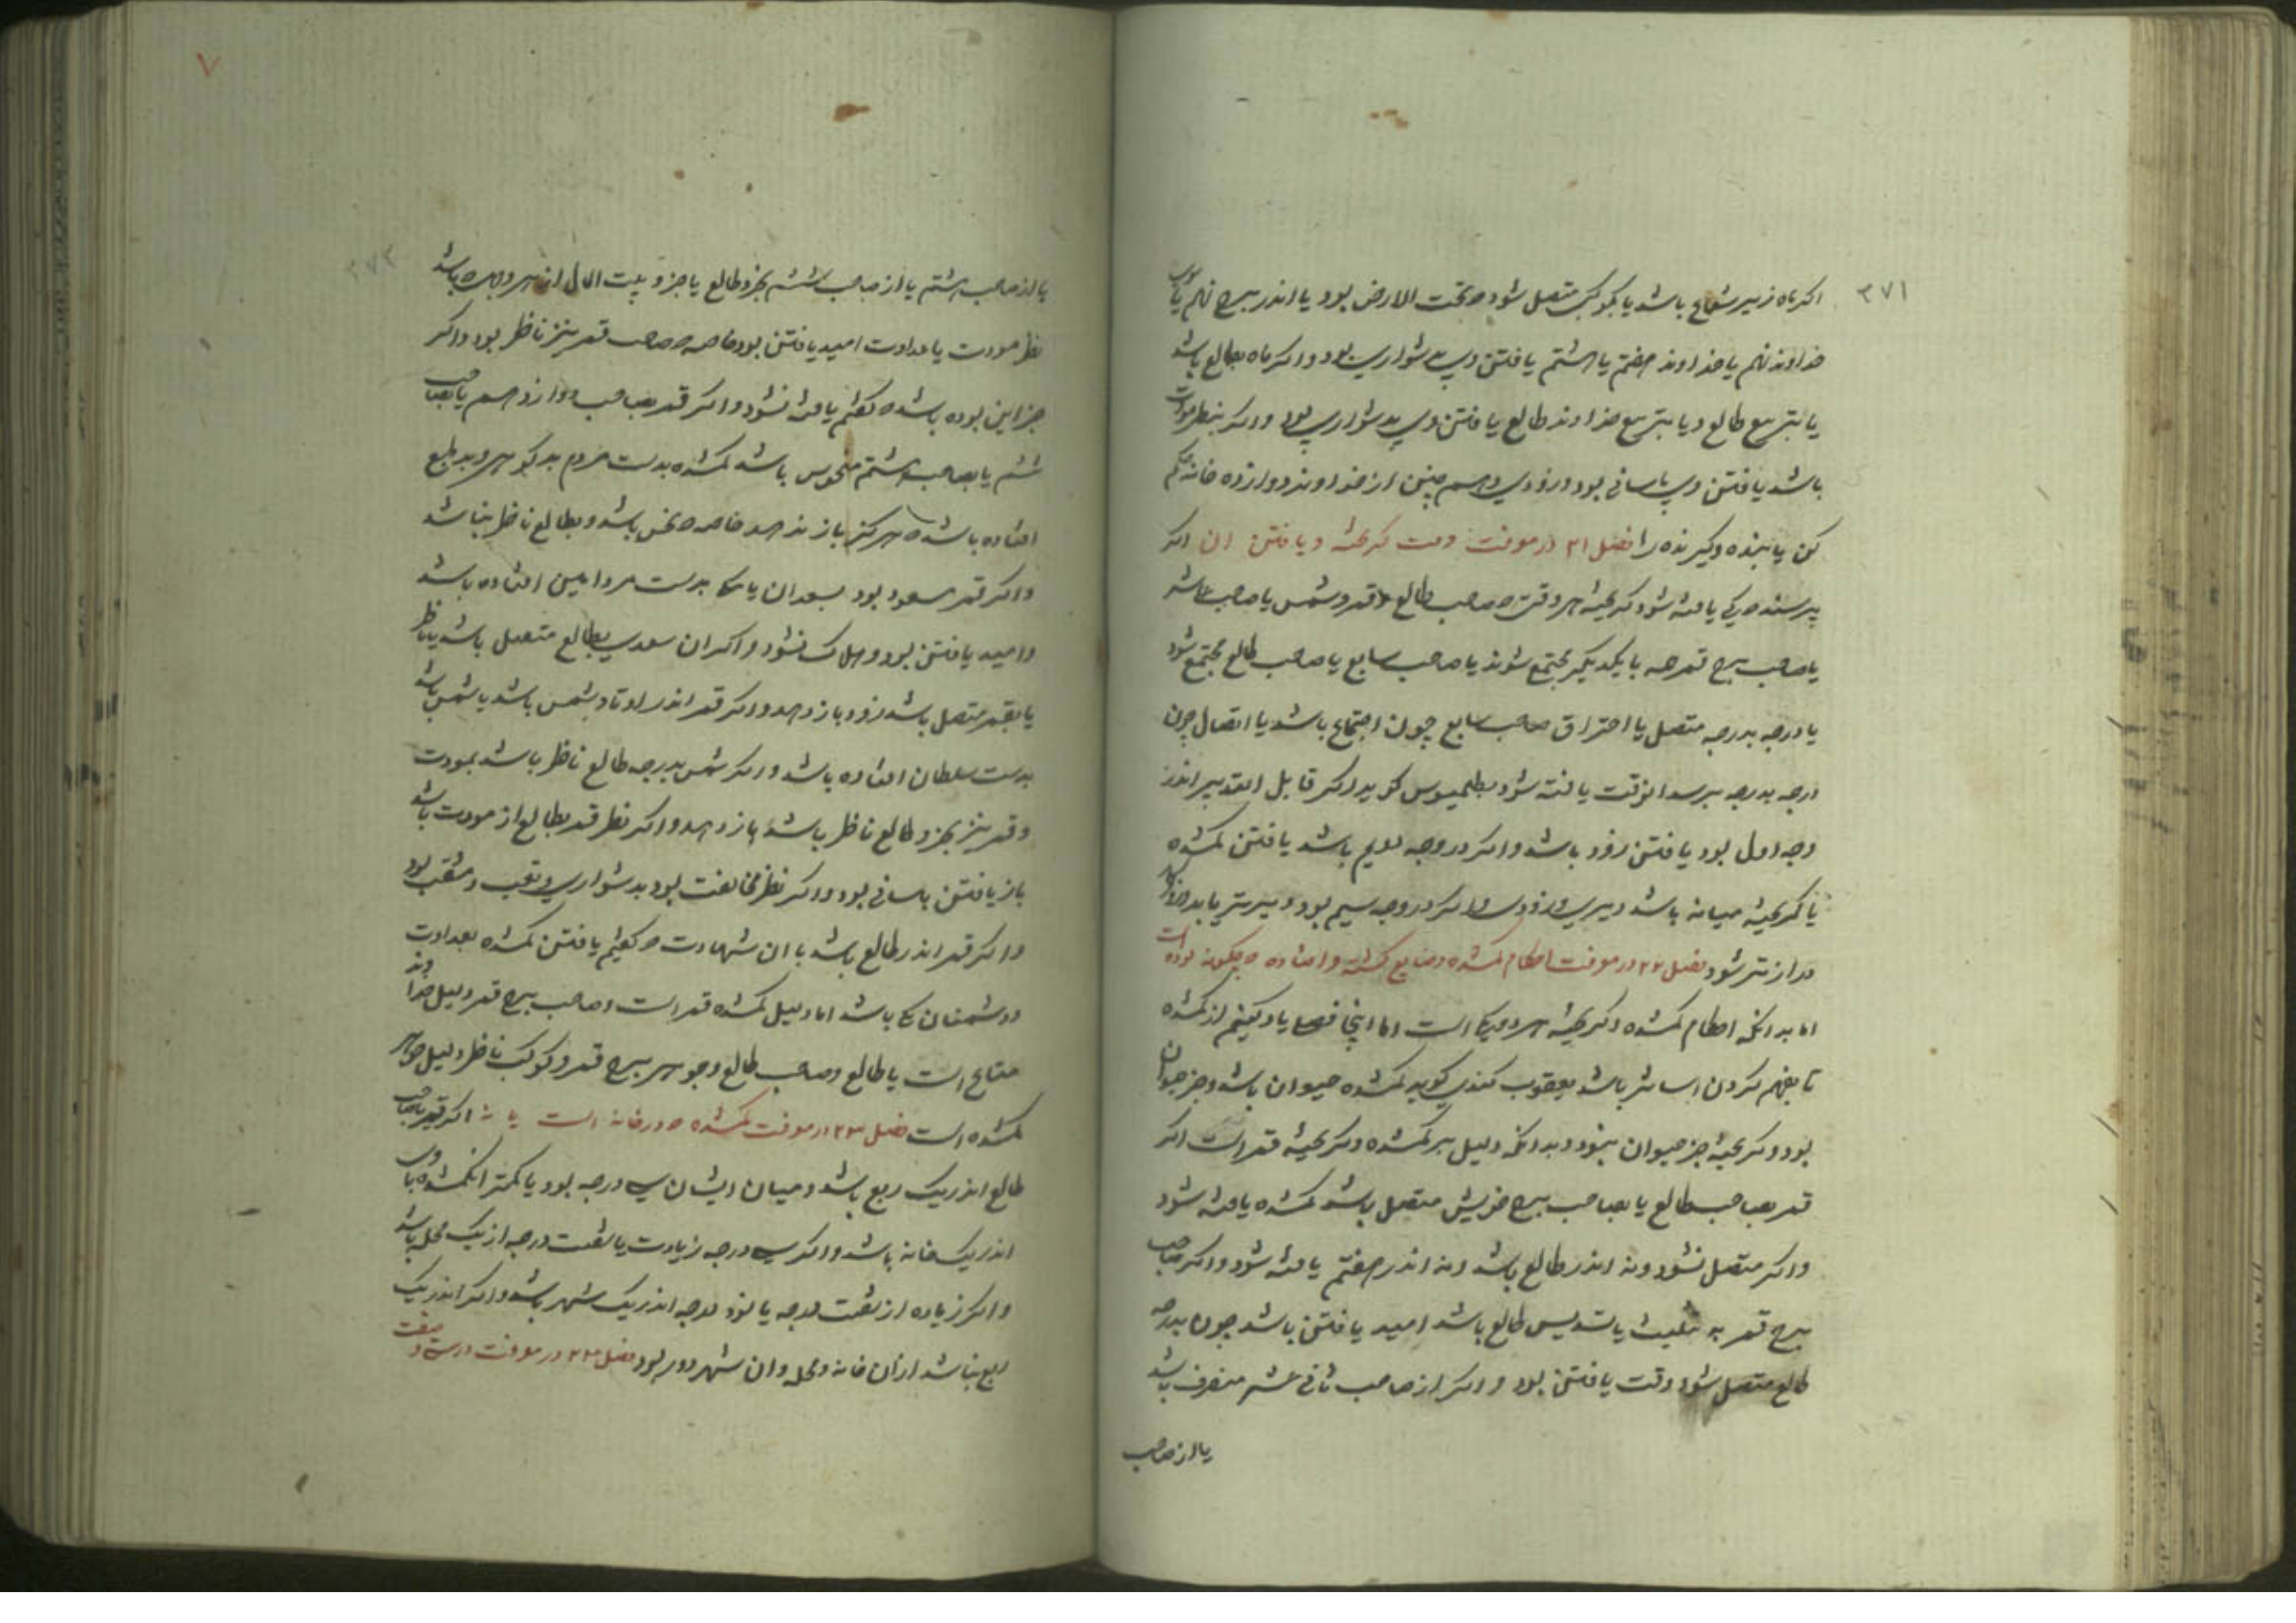 ۳۷۱
اکر ماه زیر شعاع باشد یا بکوکبی متصل شود که تحت الارض بود یا اندر برج نهم یا سوی
خداوند نهم یا خداوند هفتم یا هشتم یافتن وی بدشواری بود و اکر ماه بطالع باشد
یا بتربیع طالع و یا بتربیع خداوند طالع یافتن وی بدشواری بود و اکر بنظر مودت
باشد یافتن وی باسانی بود و زودی و همچنین از خداوند دوازده خانه حکم
کن یابنده و کیرنده را فصل ۲۱ در معرفت وقت کریخته و یافتن ان اکر
پرسند که کی یافته شود کریخته هر وقت که صاحب طالع و قمر و شمس یا صاحب عاشر
یا صاحب برج قمر چه با یکدیکر مجتمع شوند یا صاحب سابع یا صاحب طالع مجتمع شود
یا درجه بدرجه متصل یا احتراق صاحب سابع چون اجتماع باشد یا اتصال چون
درجه بدرجه برسد انوقت یافته شود بطلمیوس کوید اکر قابل التدبیر اندر
وجه اول بود یافتن زود باشد و اکر در وجه دویم باشد یافتن کمشده
یا کریخته میانه باشد دیری و زودی و اکر در وجه سیم بود دیرتر یابد و روزکار
درازتر شود فصل ۲۲ در معرفت احکام کمشده و ضایع کشته و افتاده که چکونه بوده است
اما بدانکه احکام کمشده و کریخته هر دو یکی است اما اینجا فصلی یاد کنیم از کمشده
تا بفهم کردن اسانتر باشد یعقوب کندی کوید کمشده حیوان باشد و جز حیوان
بود و کریخته جز حیوان نبود و بدانکه دلیل بر کمشده و کریخته قمر است اکر
قمر بصاحب طالع یا بصاحب برج خویش متصل باشد کمشده یافته شود
و اکر متصل نشود و نه اندر طالع باشد و نه اندر هفتم یافته شود و اکر صاحب
برج قمر به تثلیث یا تسدیس طالع باشد امید یافتن باشد چون بدرجه
طالع متصل شود وقت یافتن بود و اکر از صاحب ثانی عشر منصرف باشد
یا از صاحب
۷
۳۷۲
یا از صاحب هشتم یا از صاحب ششم بجزو طالع یا جزو بیت المال از هر دو بهره باشد
نظر مودت یا عداوت امید یافتن بود خاصه که صاحب قمر نیز ناظر بود و اکر
جز این بوده باشد که کفتم یافته نشود و اکر قمر بصاحب دوازدهم یا بصاحب
ششم یا بصاحب هشتم منحوس باشد کمشده بدست مردم بدکوهر و بدطبع
افتاده باشد که هرکز باز ندهد خاصه که نحس باشد و بطالع ناظر نباشد
و اکر قمر مسعود بود بسعدان بدست مرد امین افتاده باشد
و امید یافتن بود و هلاک نشود و اکر ان سعدی بطالع متصل باشد یا ناظر
یا بقمر متصل باشد زود باز دهد و اکر قمر اندر اوتاد بشمس باشد یا شمس باشد
بدست سلطان افتاده باشد و اکر شمس بدرجه طالع ناظر باشد بمودت
و قمر نیز بجزو طالع ناظر باشد باز دهد و اکر نظر قمر بطالع از مودت باشد
باز یافتن باسانی بود و اکر نظر مخالفت بود بدشواری و تعب و مشقت بود
و اکر قمر اندر طالع باشد با ان شهادت که کفتیم یافتن کمشده بعداوت
و دشمنان باشد اما دلیل کمشده قمر است و صاحب برج قمر دلیل خداوند
متاع است یا طالع و صاحب طالع و جوهر برج قمر و کوکب ناظر دلیل جواهر
کمشده است فصل ۲۳ در معرفت کمشده که در خانه است یا نه اکر قمر با صاحب
طالع اندر یک ربع باشد و میان ایشان سی درجه بود یا کمتر ان کمشده با وی
اندر یک خانه باشد و اکر سی درجه زیادت یا شصت درجه از یک محله باشد
و اکر زیاده از شصت درجه یا نود درجه اندر یک شهر باشد و اکر اندر یک
ربع نباشد از ان خانه و محله و ان شهر دور بود فصل ۲۴ در معرفت دزد و صفت